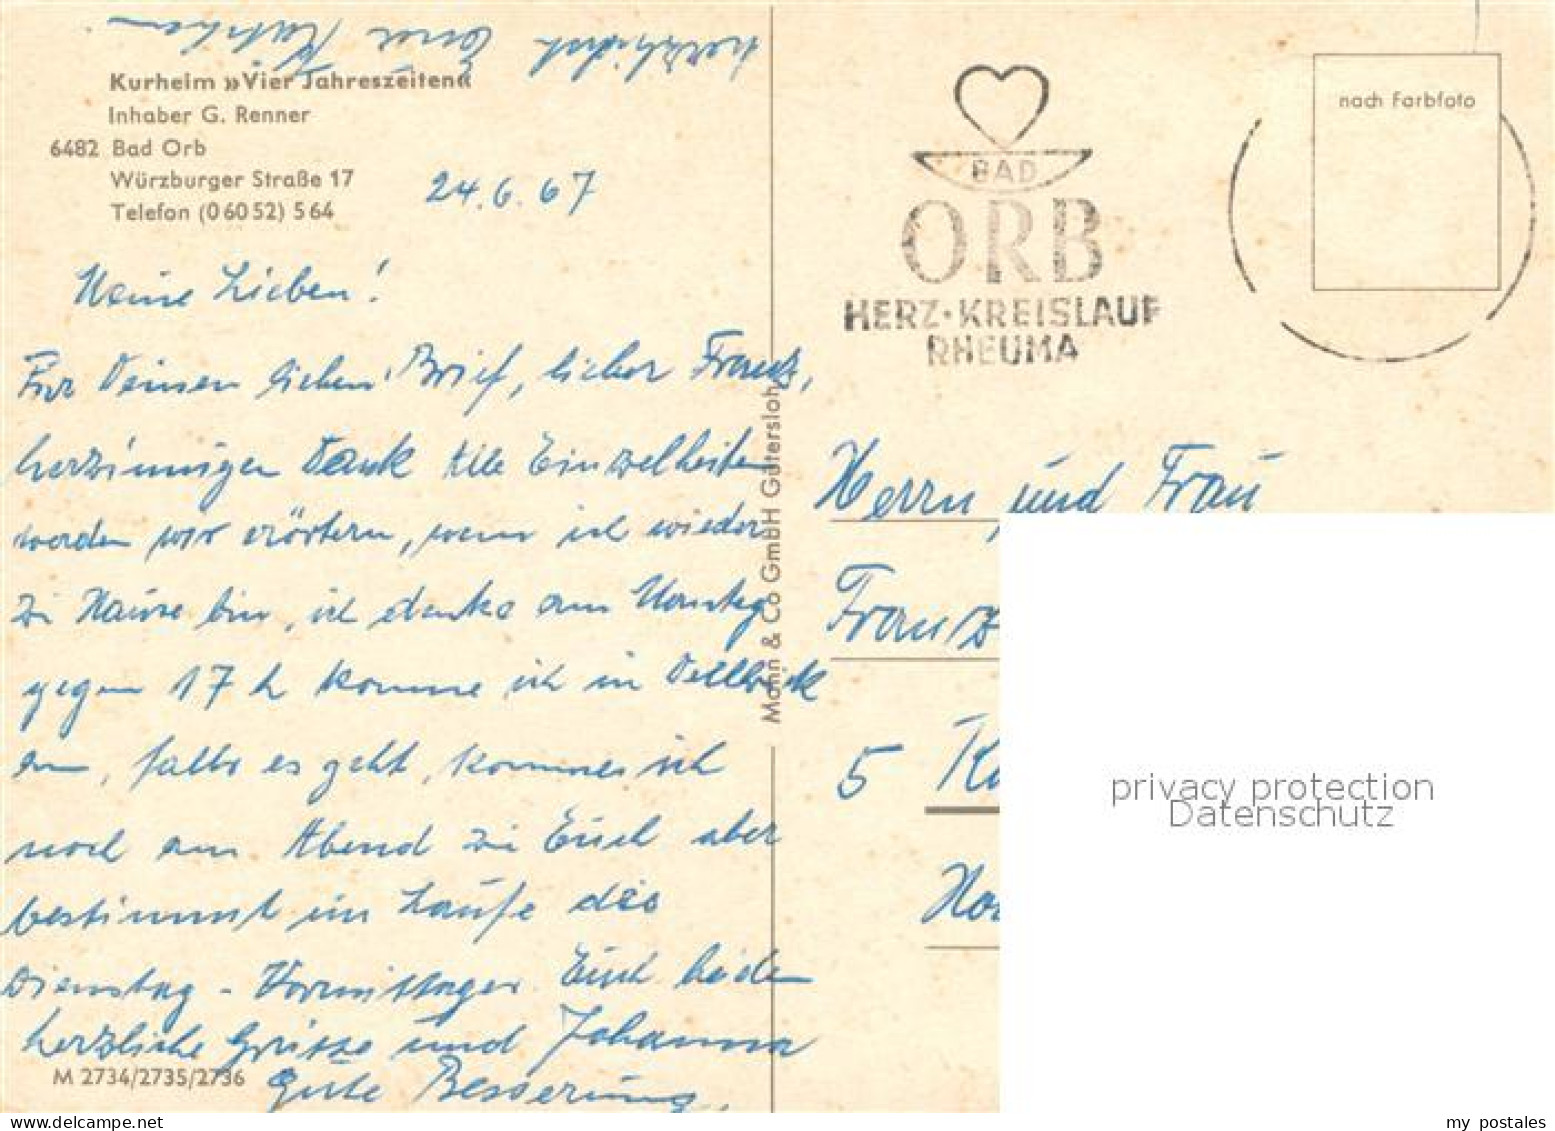 Kurheim »Vier Jahreszeiten«
Inhaber G. Renner
6482 Bad Orb
Würzburger Straße 17
Telefon (0 60 52) 5 64
24.6.67
Meine Lieben!
Für Deinen lieben Brief, lieber Franz,
herzinnigen Dank Alle Einzelheiten
werden wir erörtern, wenn ich wieder
zu Hause bin, ich denke am Montag
gegen 17 h komme ich in Dellbrück
an, falls es geht, komme ich
noch am Abend zu Euch aber
bestimmt im Laufe des
Dienstag - Vormittages. Euch beiden
herzliche Grüsse und Johanna
Gute Besserung.
herzlichst Eure
M 2734/2735/2736
Mohn & Co GmbH Gütersloh
BAD
ORB
HERZ·KREISLAUF
RHEUMA
nach Farbfoto
Herrn und Frau
Franz
5
privacy protection
Datenschutz
my postales